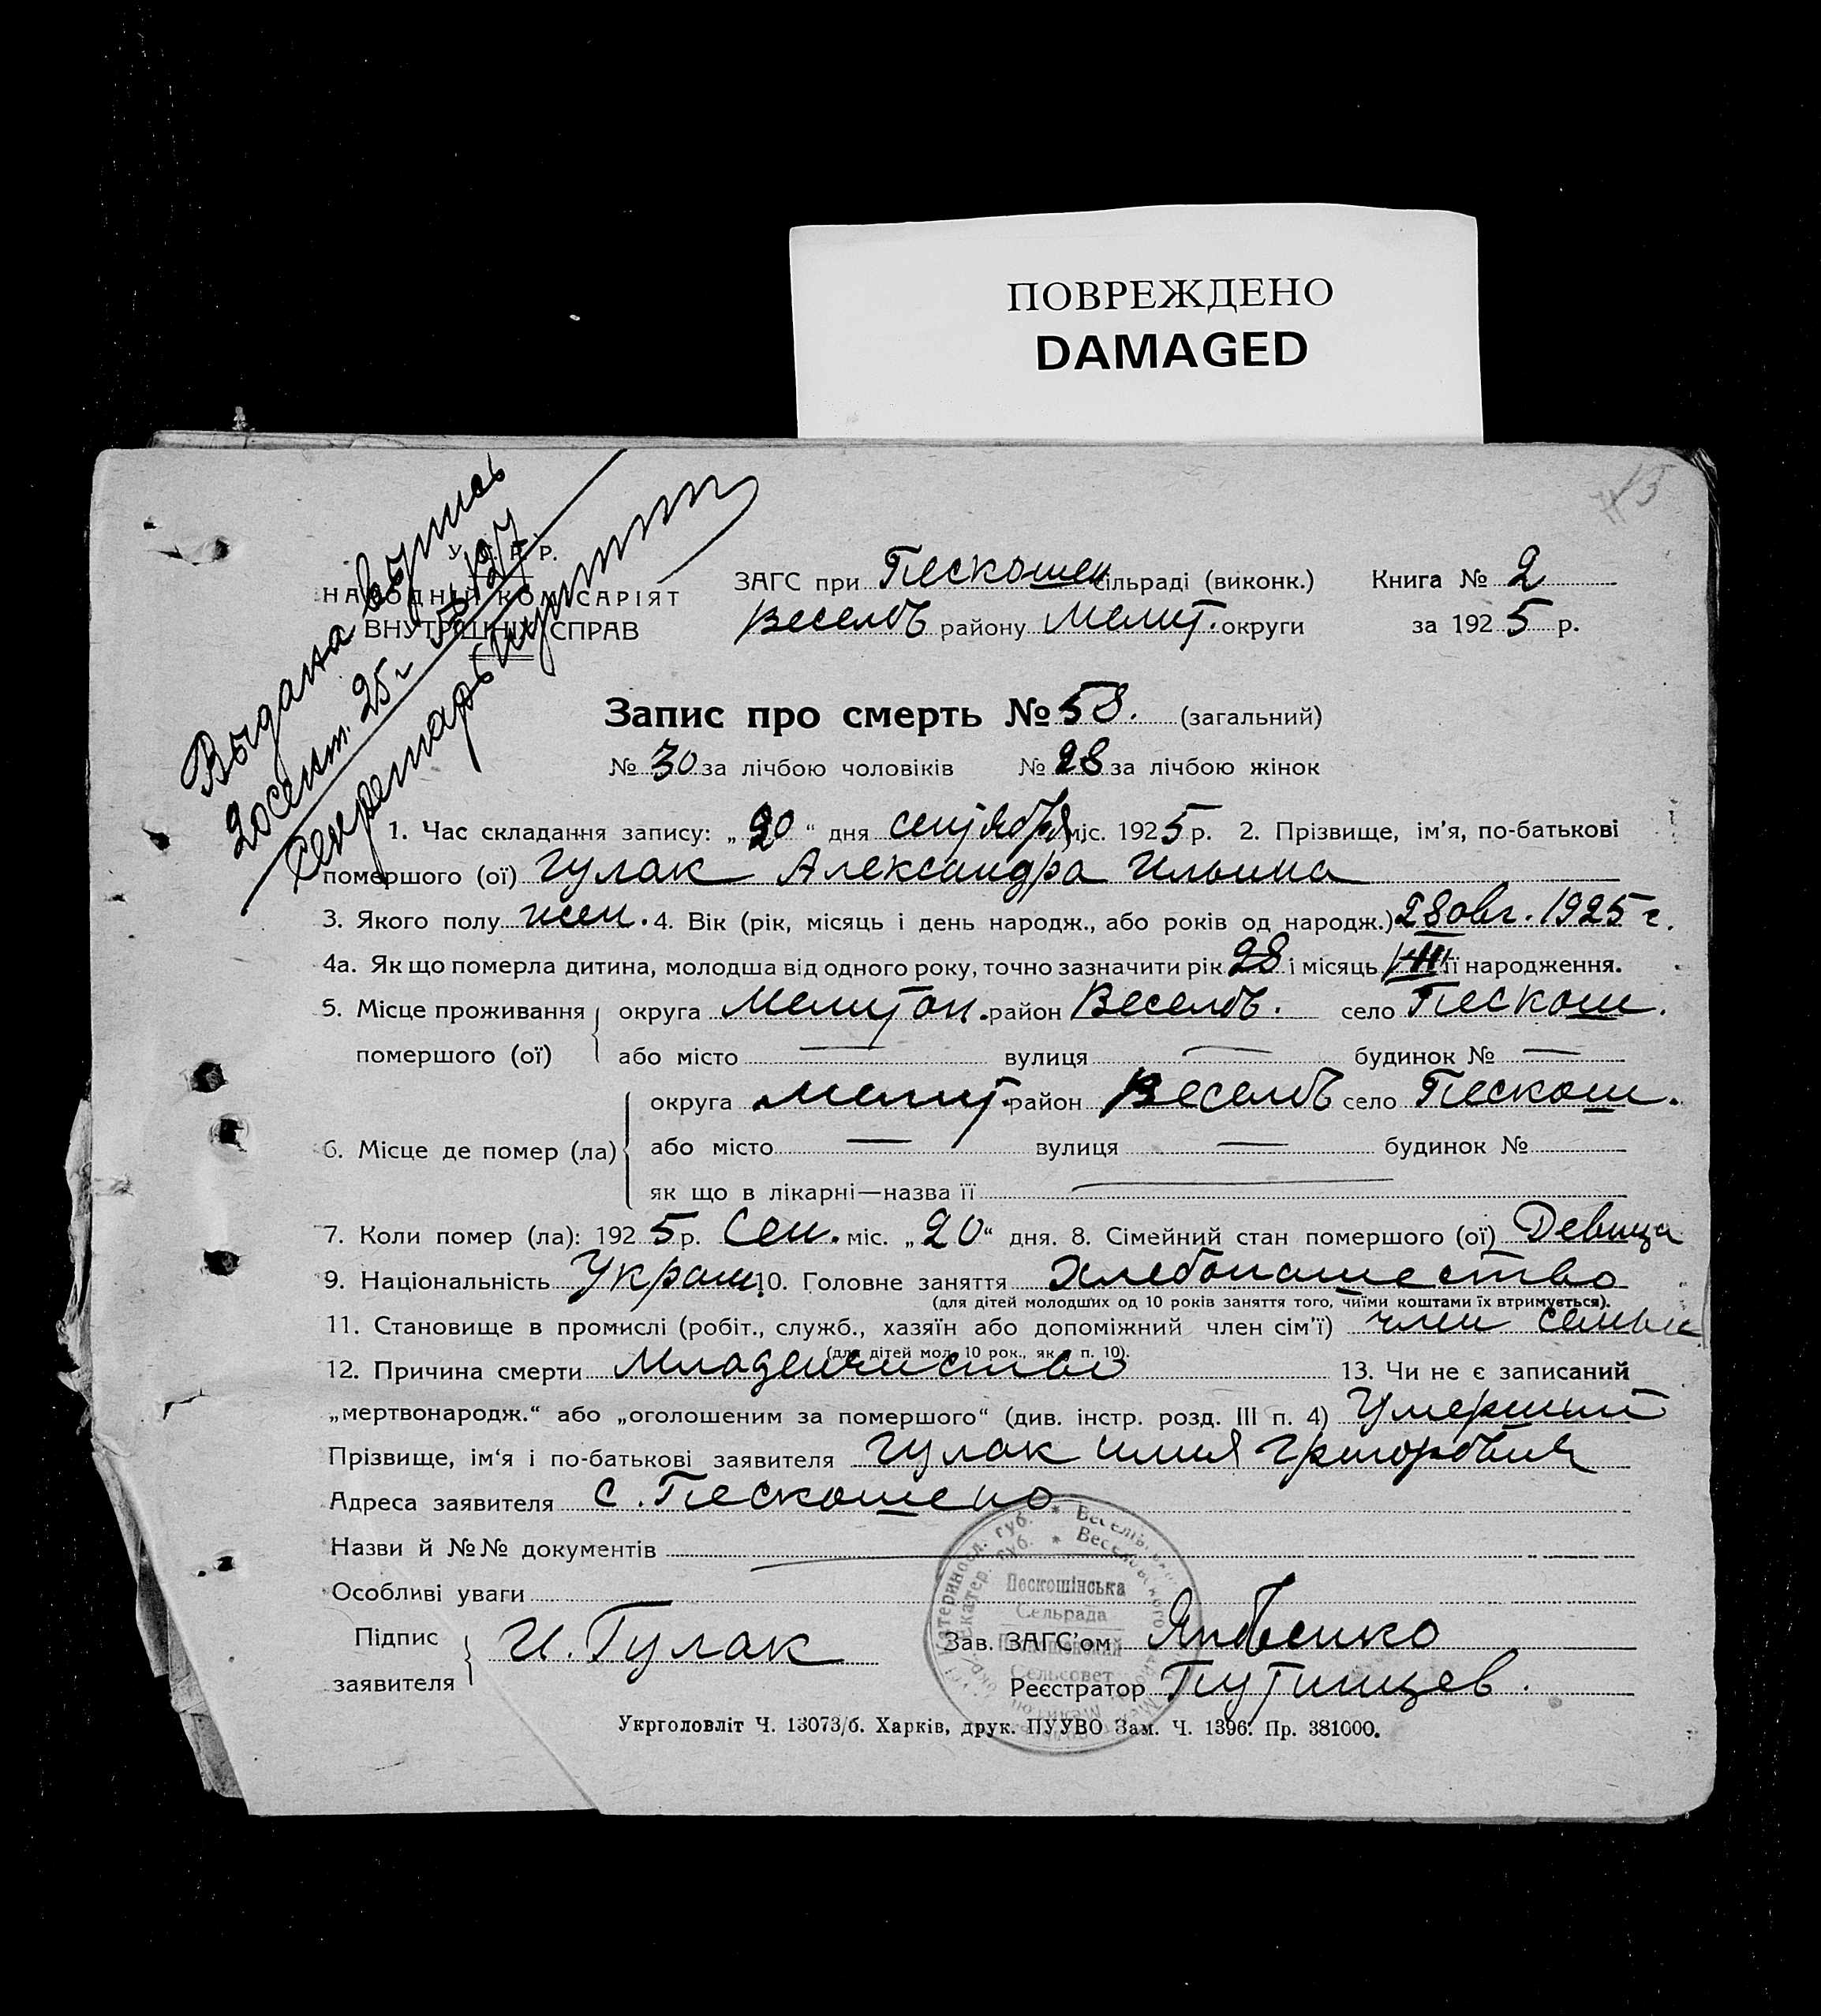 ПОВРЕЖДЕНО
DAMAGED
Выдана выпись
20 сент. 25 г.
Секретарь
У. С. Р. Р.
НАРОДНИЙ КОМІСАРІЯТ
ВНУТРІШНІХ СПРАВ
ЗАГС при Пескошен сільраді (виконк.) Книга № 2
Веселов району Мелит. округи за 1925 р.
Запис про смерть № 58. (загальний)
№ 30 за лічбою чоловіків № 28 за лічбою жінок
1. Час складання запису: „20“ дня сентября міс. 1925 р. 2. Прізвище, ім'я, по-батькові
помершого (ої) Гулак Александра Ильина
3. Якого полу жен. 4. Вік (рік, місяць і день народж., або років од народж.) 28 авг. 1925 г.
4а. Як що померла дитина, молодша від одного року, точно зазначити рік 28 і місяць VIII її народження.
5. Місце проживання округа Мелитоп. район Веселов. село Пескош.
помершого (ої) або місто — вулиця — будинок № —
6. Місце де помер (ла) округа Мелит. район Веселов село Пескош.
або місто — вулиця — будинок №
як що в лікарні—назва її —
7. Коли помер (ла): 1925 р. Сен. міс. „20“ дня. 8. Сімейний стан помершого (ої) Девица
9. Національність Украин. 10. Головне заняття Хлебопашество
(для дітей молодших од 10 років заняття того, чиїми коштами їх втримується).
11. Становище в промислі (робіт., служб., хазяїн або допоміжний член сім'ї) член семьи
(для дітей мол. 10 рок., як в п. 10).
12. Причина смерти Младенчество 13. Чи не є записаний
„мертвонародж.“ або „оголошеним за помершого“ (див. інстр. розд. III п. 4) Умерший
Прізвище, ім'я і по-батькові заявителя Гулак Илия Григорович
Адреса заявителя с. Пескошено
Назви й №№ документів —
Особливі уваги
Підпис заявителя И. Гулак
Зав. ЗАГС'ом Яковенко
Реєстратор Путинцев.
Пескошінська
Сельрада
Пескошенский
Сельсовет
Укрголовліт Ч. 13073/б. Харків, друк. ПУУВО Зам. Ч. 1396. Пр. 381000.